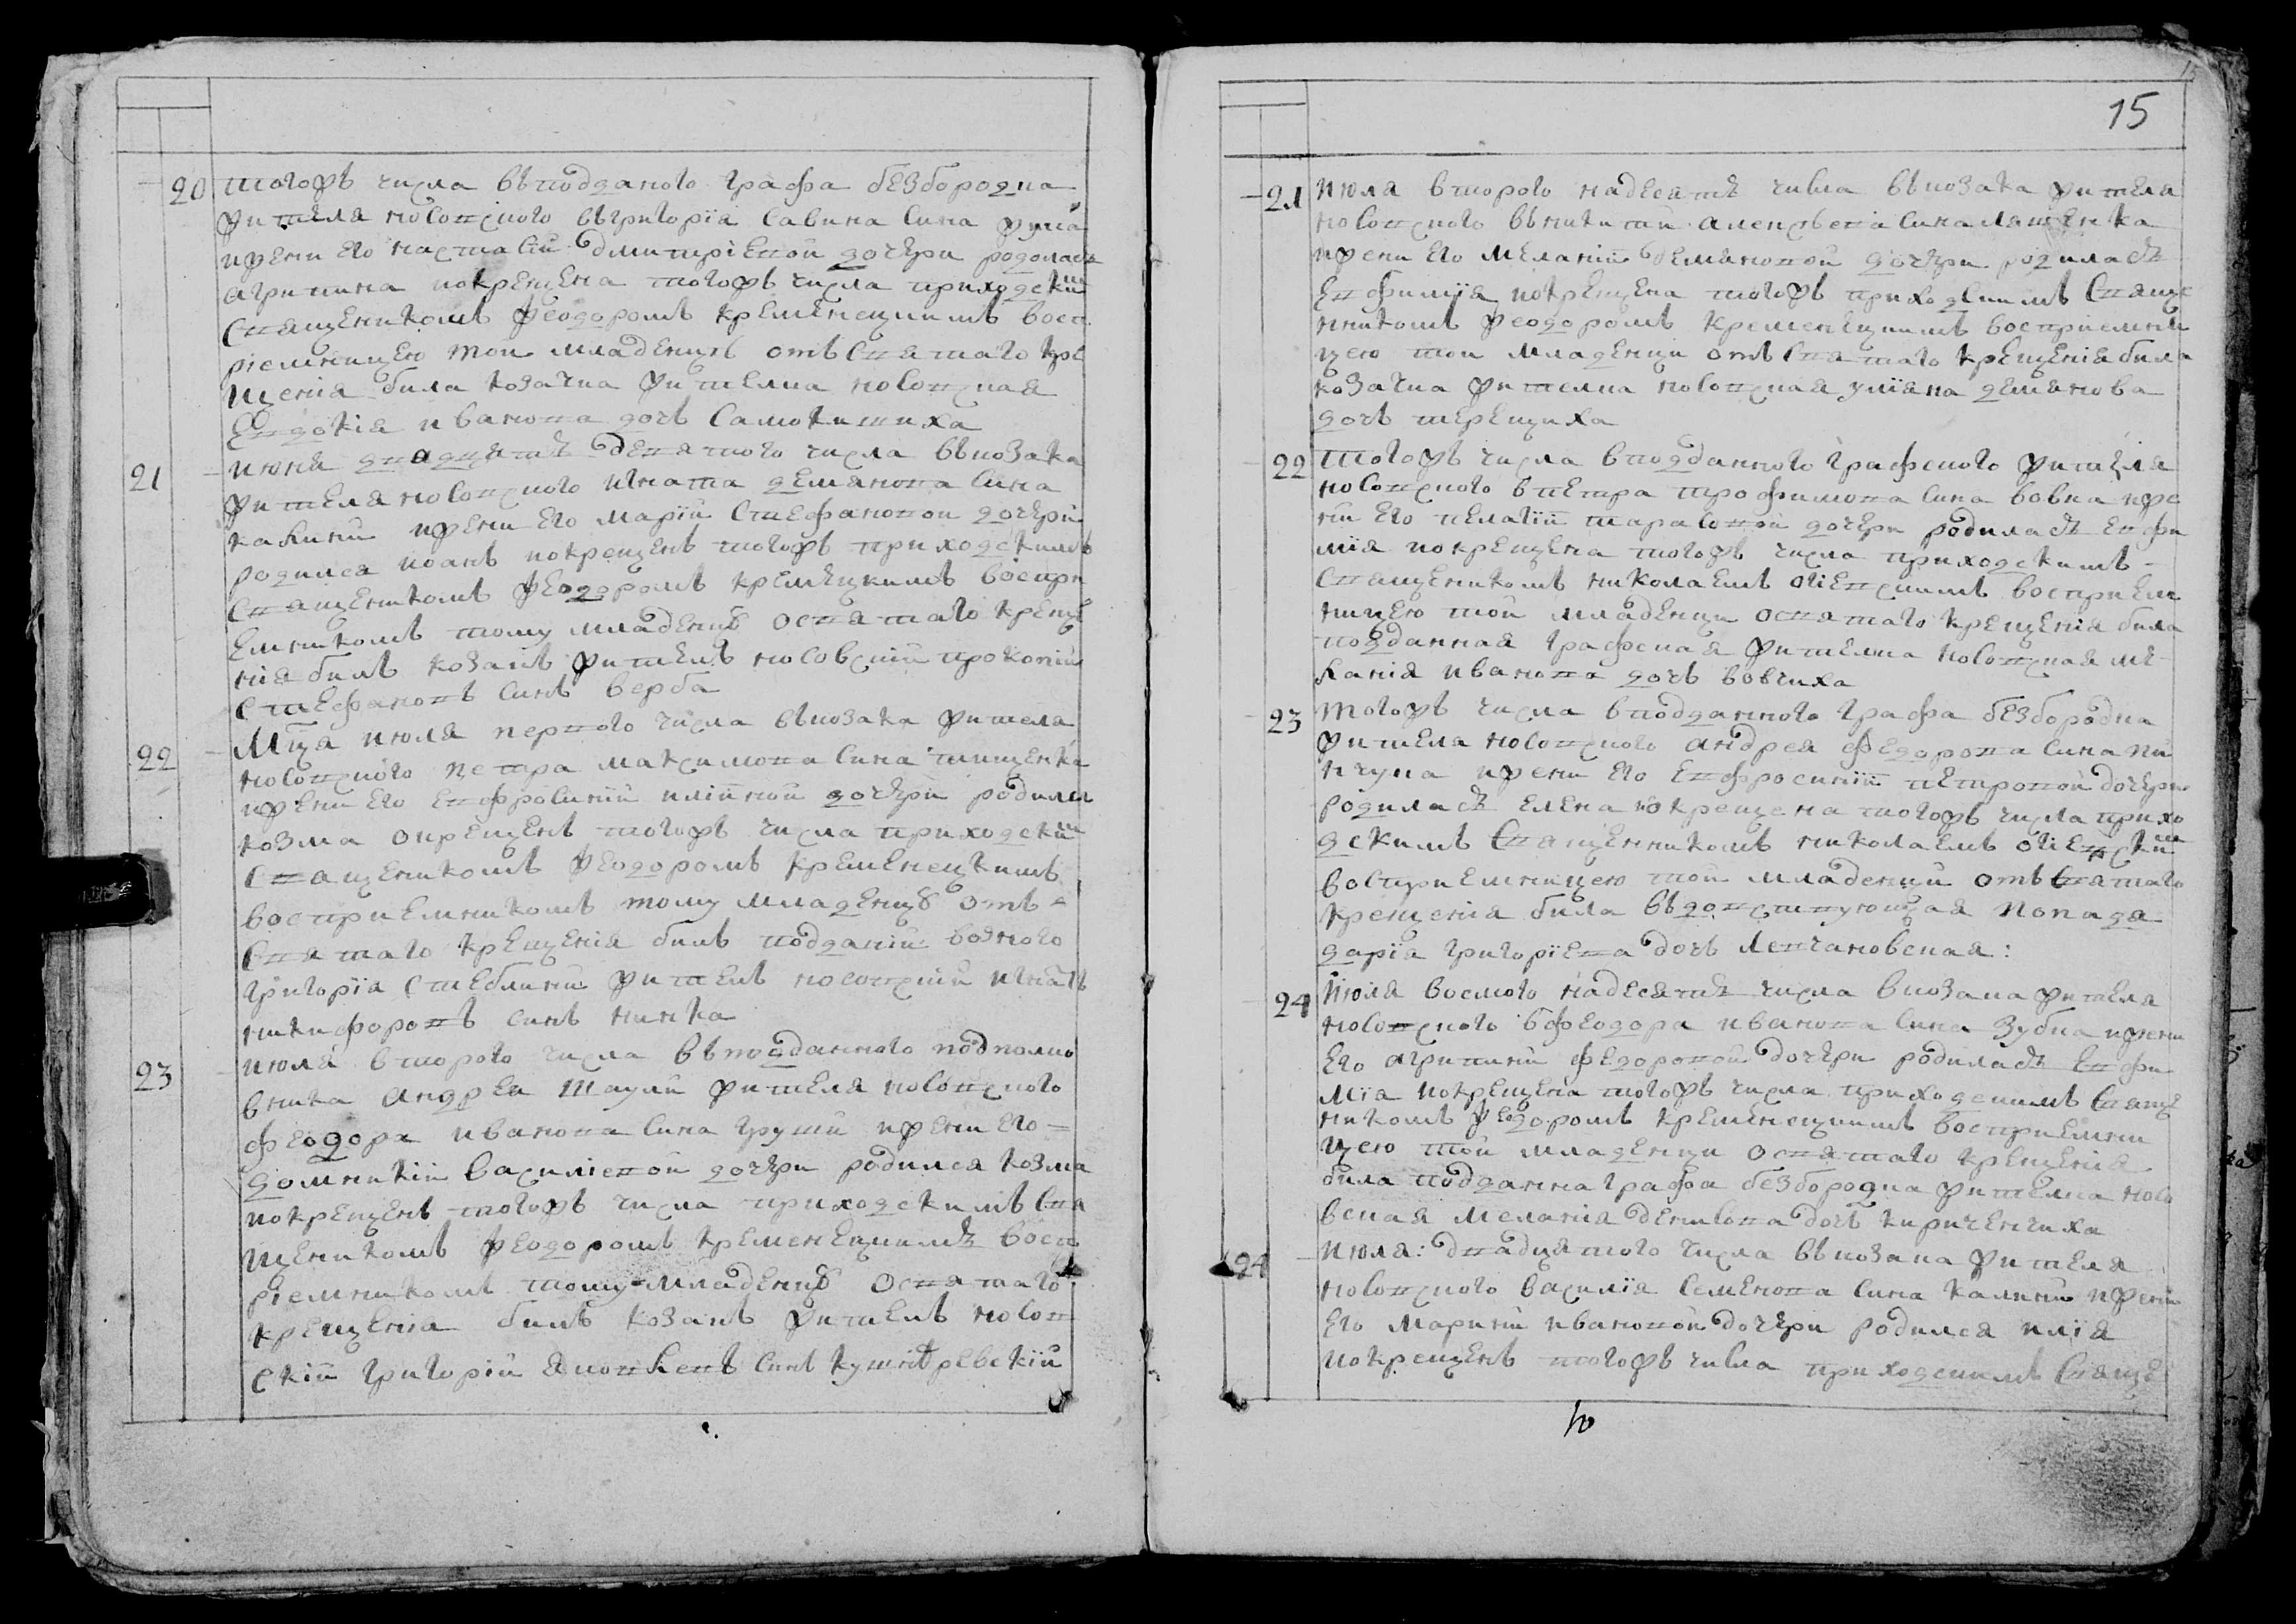 20 тогожъ числа въподданого графа безбородка
жителя носовского въгригорія савина сина
изжени его настасіи дмитріевой дочери родолась
агрипина икрещена тогожъ числа приходским
священикомъ феодоромъ кременецкимъ восп
ріемницею тои младенцѣ отъ святаго кре
щенія била козачка жителка носовская
Евдокія иванова дочъ самокишиха
21 июня двадцять девятого числа въкозака
жителя носовского игната демянова сина
калини ижени его маріи стефановой дочери
родился иоанъ икрещенъ тогожъ приходскимъ
священикомъ феодоромъ кремецкимъ воспри
емникомъ тому младенцу освятаго креще
нія билъ козакъ жителъ носовскій прокопій
стефановъ синъ верба
22 Мца июля первого числа вкозака жителя
носовского петра максимова сина тищенка
ижени его евфросиніи иліиной дочери родился
козма окрещенъ тогожъ числа приходским
священикомъ феодоромъ кременецкимъ
восприемникомъ тому младенцу отъ
святаго крещенія билъ подданій возного
григорія стеблини жителъ носовскій игнатъ
никифоровъ синъ нитка
23 июля второго числа въподданного подполко
вника андрея шаули жителя носовского
феодора иванова сина груши ижени его
домникіи василіевой дочери родился козма
икрещенъ тогожъ числа приходскимъ свя
щеникомъ феодоромъ кременецкимъ восп
ріемникомъ тому младенцу освятаго
крещенія билъ козакъ жителъ носов
скій григорій яковлевъ синъ
15
21 июля второго надесять числа въкозака жителя
носовского въникити алексѣева сина ляшенка
ижени его меланіи демяновой дочери родилась
Евфимія икрещена тогожъ приходскимъ свяще
нникомъ феодоромъ кременецкимъ восприемни
цею тои младенци отъ святаго крещенія била
козачка жителка носовская уліяна демянова
дочъ терещиха
22 тогожъ числа вподданного графского жителя
носовского впетра трофимова сина вовка иже
ни его пелагіи тарасовой дочери родилась евфи
мія икрещена тогожъ числа приходскимъ
священикомъ николаемъ огіевскимъ восприем
ницею той младенци освятаго крещенія била
подданная графская жителка носовская ме
ланія иванова дочъ вовчиха
23 тогожъ числа вподданного графа безбородка
жителя носовского андрея федорова сина пи
кчука ижени его евфросиніи петровой дочери
родилась елена икрещена тогожъ числа прихо
дскимъ священникомъ николаемъ огіевским
восприемницею той младенци отъ святаго
крещенія била въдовствующая попадя
дарія григоріева дочъ левчановская:
24 Июля восмого надесять числа вкозака жителя
носовского вфеодора иванова сина зубка ижени
его агрипини федоровой дочери родилась евфи
мія икрещена тогожъ числа приходскимъ свяще
никомъ феодоромъ кременецкимъ восприемни
цею той младенци освятаго крещенія
била подданна графа безбородка жителка носо
вская меланія денисова дочъ кириченчиха
24 июля: двадцятого числа вкозака жителя
носовского василія семенова сина калини ижени
его марини ивановой дочери родился илія
икрещенъ тогожъ числа приходскимъ свяще